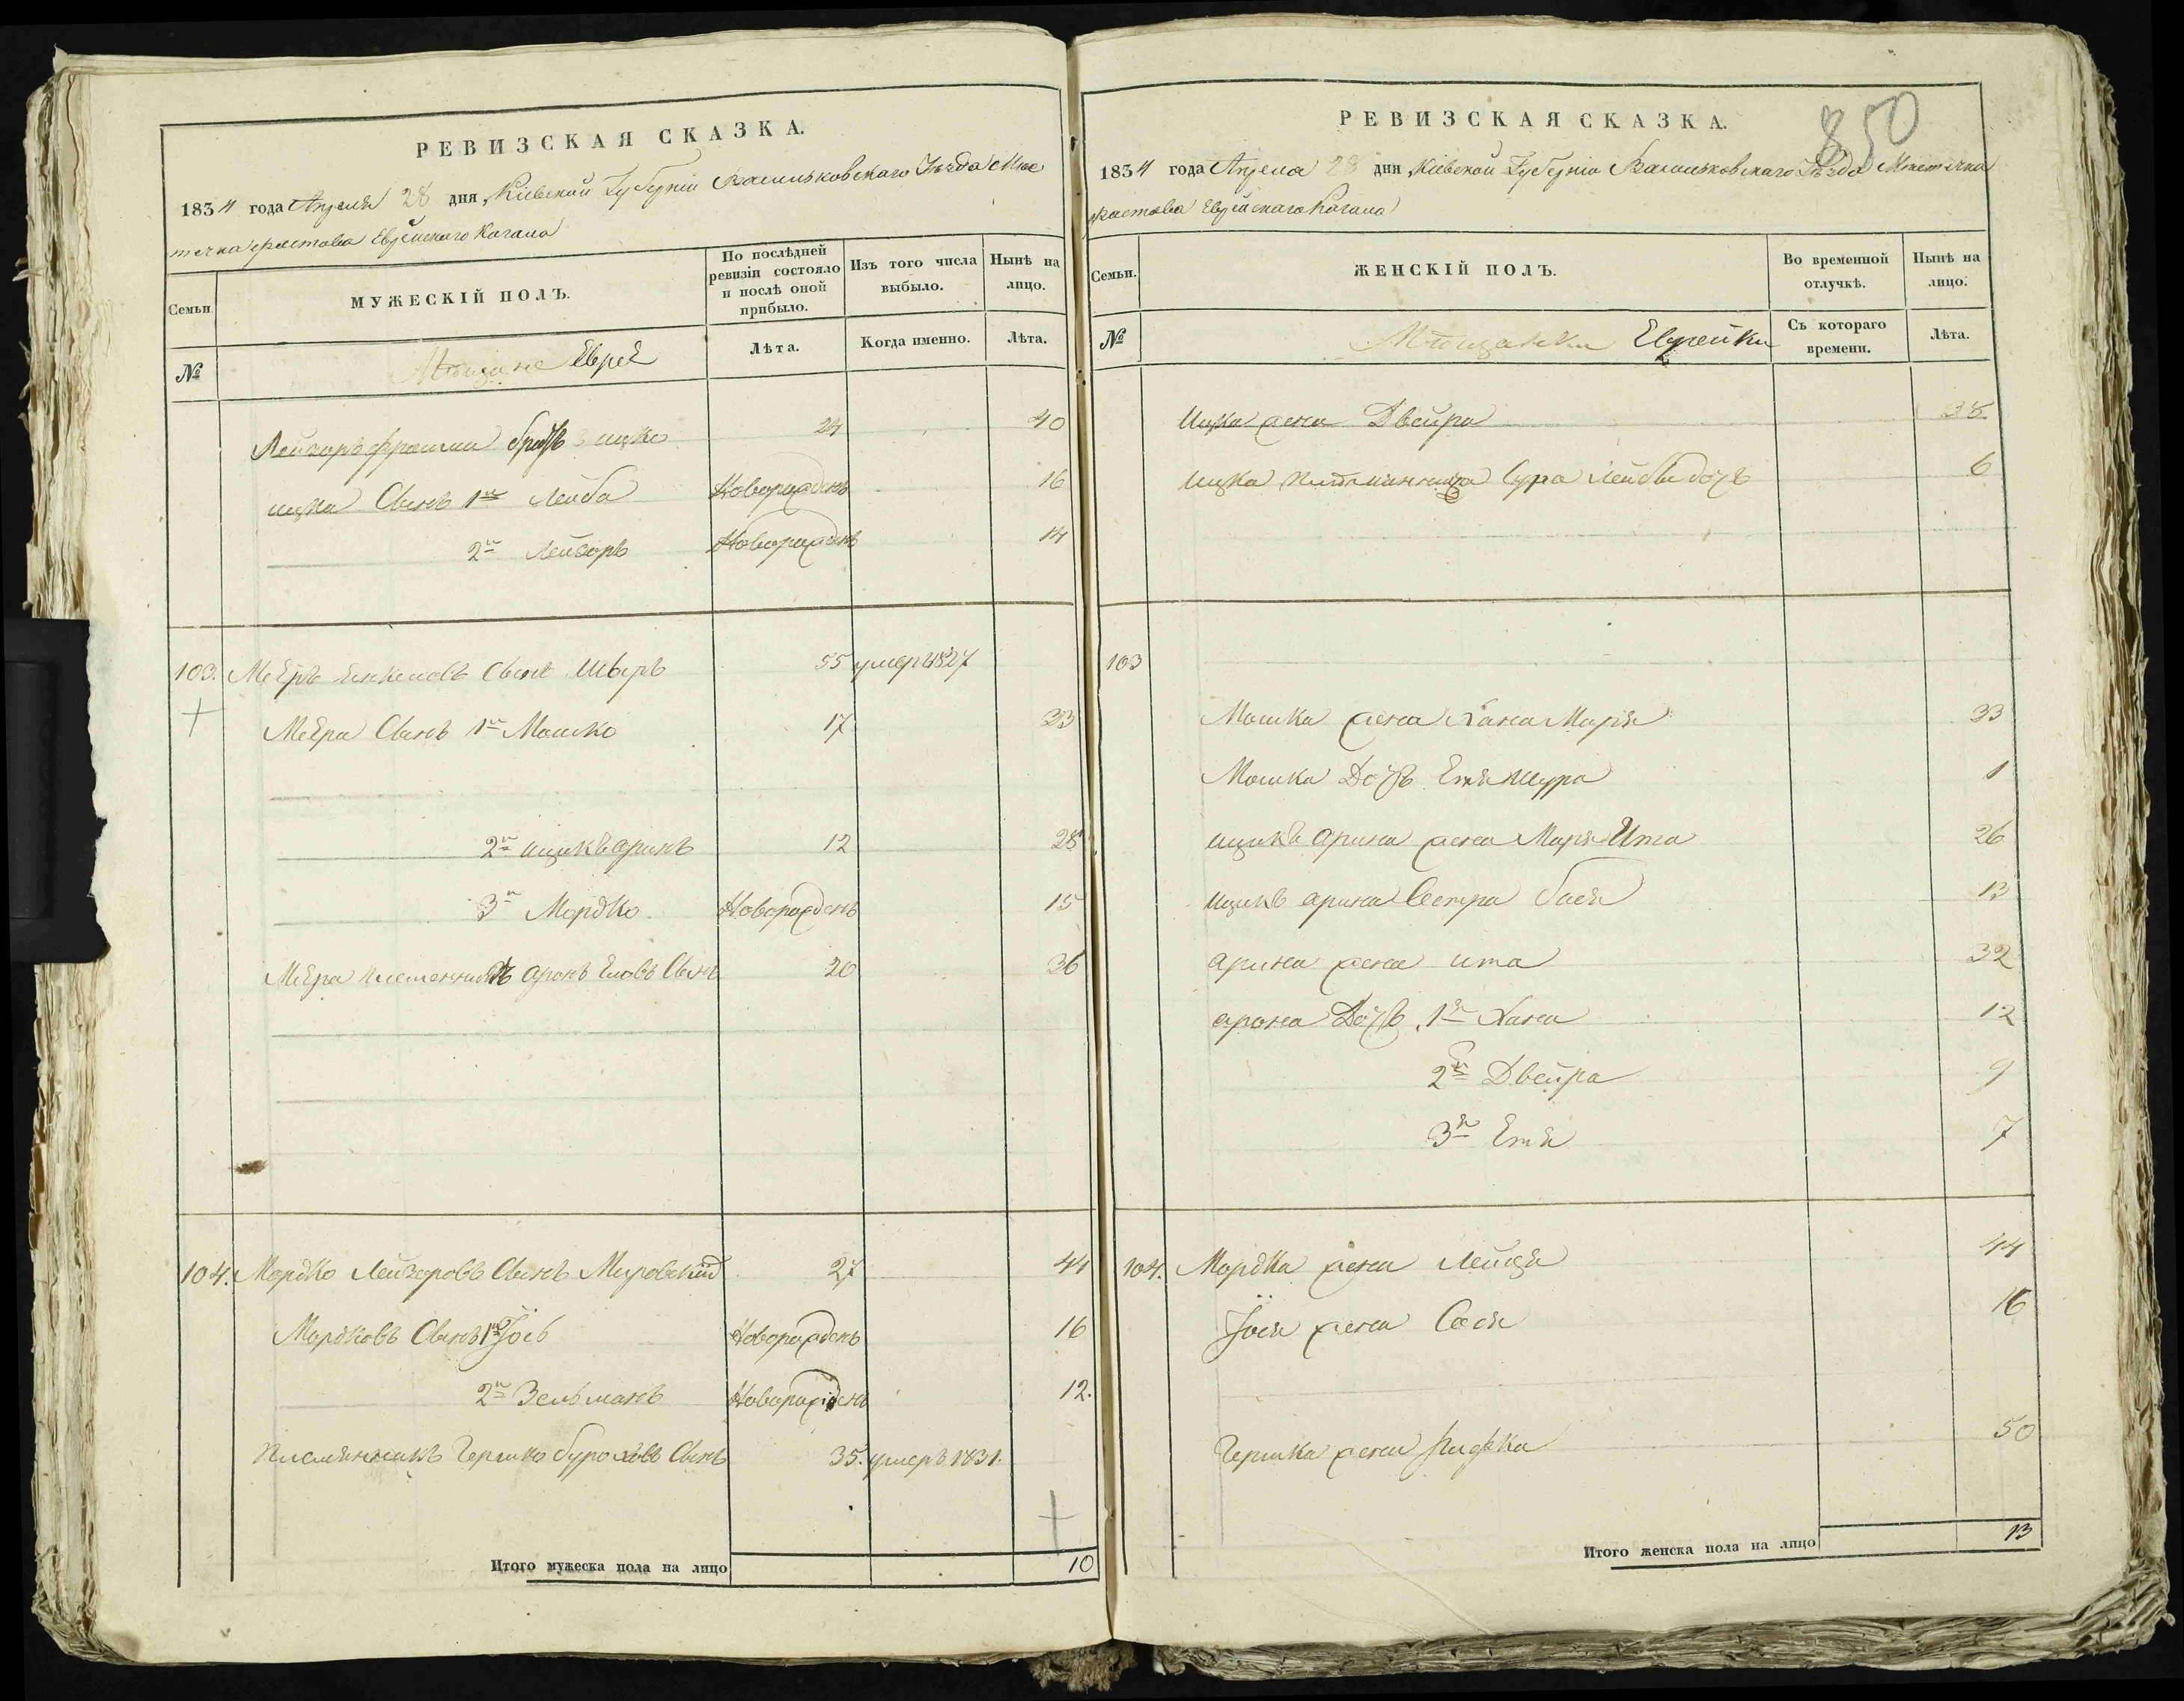 РЕВИЗСКАЯ СКАЗКА.
1834 года Апреля 28 дня, Кіевской Губерніи Васильковскаго Уѣзда Мѣс
течка Фастова Еврейскаго Кагала
Семьи.
МУЖЕСКІЙ ПОЛЪ.
По послѣдней ревизіи состояло и послѣ оной прибыло.
Изъ того числа выбыло.
Нынѣ на лицо.
№
Мѣщане Евреѣ
Лѣта.
Когда именно.
Лѣта.
Лейзоръ братъ ицко 24 40
ицка Сынъ 1й Лейба Новорожденъ 16
2й Лейзоръ Новорожденъ 14
103. Меѣръ Янкелевъ Сынъ 55 умеръ 1827
Меѣра Сынъ 1й Мошко 17 33
2й ицикъ аринъ 12 28
3й Мордко Новорожденъ 15
Меѣра племенникъ аронъ Сынъ 20 36
104. Мордко Лейзоровъ Сынъ Мировскій 27 44
Мордковъ Сынъ 1й Іось Новорожденъ 16
2й Зельманъ Новорожденъ 12.
Племянникъ Гершко Сынъ 35. умеръ 1831.
Итого мужеска пола на лицо 10
РЕВИЗСКАЯ СКАЗКА.
850
1834 года Апреля 28 дня Кіевской Губерніи Васильковскаго Уѣзда Мѣстечка
Фастова Еврейскаго Кагала
Семьи.
ЖЕНСКІЙ ПОЛЪ.
Во временной отлучкѣ.
Нынѣ на лицо.
№
Мѣщанки Еврейки
Съ котораго времени.
Лѣта.
Ицка жена Двейра 38
Ицка племянница Сура Лейбы дочь 6
103
Мошка жена Хана Маря 33
Мошка Дочь Етя 1
ицикъ арина жена Маря Ита 26
ицикъ арина Сестра бася 13
арина жена ита 32
арона Дочь 1я Хана 12
2я Двейра 9
3я Етя 7
104. Мордка жена Лейця 44
Іося жена Сося 16
Гершка жена Рифка 50
Итого женска пола на лицо 13